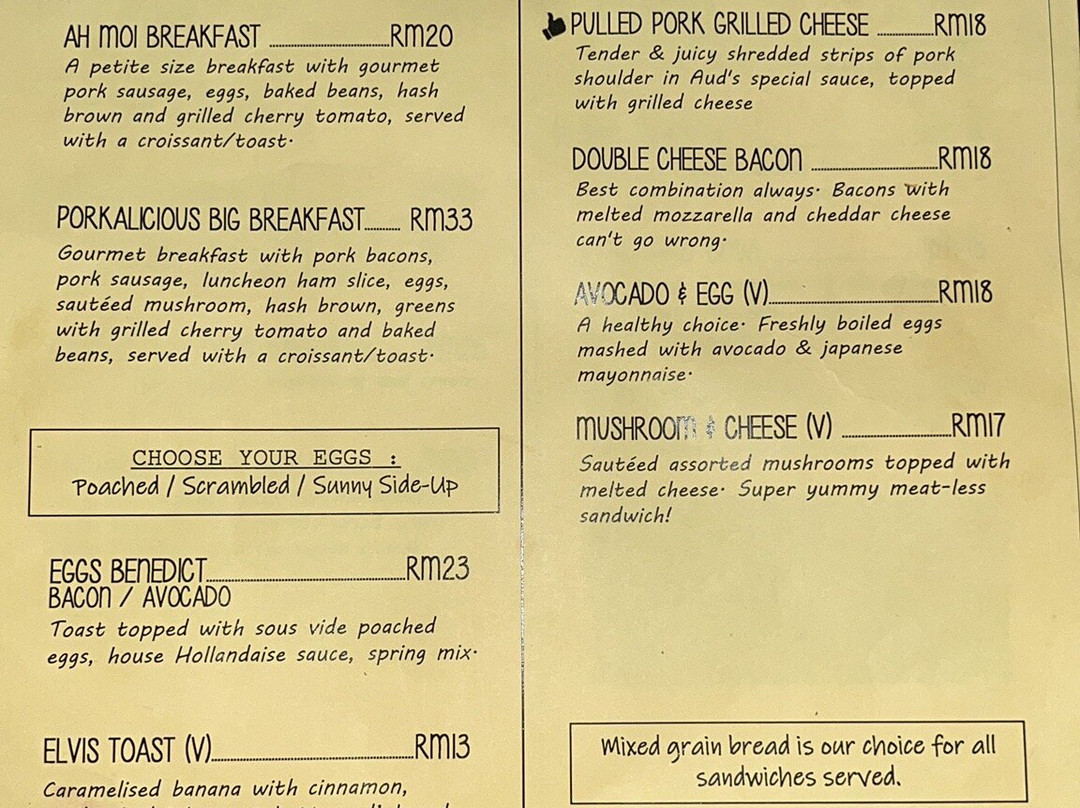 AH MOI BREAKFAST ........................RM20
A petite size breakfast with gourmet
pork sausage, eggs, baked beans, hash
brown and grilled cherry tomato, served
with a croissant/toast.
PORKALICIOUS BIG BREAKFAST....... RM33
Gourmet breakfast with pork bacons,
pork sausage, luncheon ham slice, eggs,
sautéed mushroom, hash brown, greens
with grilled cherry tomato and baked
beans, served with a croissant/toast.
CHOOSE YOUR EGGS :
Poached / Scrambled / Sunny Side-Up
EGGS BENEDICT........................................RM23
BACON / AVOCADO
Toast topped with sous vide poached
eggs, house Hollandaise sauce, spring mix.
ELVIS TOAST (V)........................................RM13
Caramelised banana with cinnamon,
PULLED PORK GRILLED CHEESE ...........RM18
Tender & juicy shredded strips of pork
shoulder in Aud's special sauce, topped
with grilled cheese
DOUBLE CHEESE BACON .........................RM18
Best combination always. Bacons with
melted mozzarella and cheddar cheese
can't go wrong.
AVOCADO & EGG (V)..................................RM18
A healthy choice. Freshly boiled eggs
mashed with avocado & japanese
mayonnaise.
MUSHROOM & CHEESE (V) ......................RM17
Sautéed assorted mushrooms topped with
melted cheese. Super yummy meat-less
sandwich!
Mixed grain bread is our choice for all
sandwiches served.